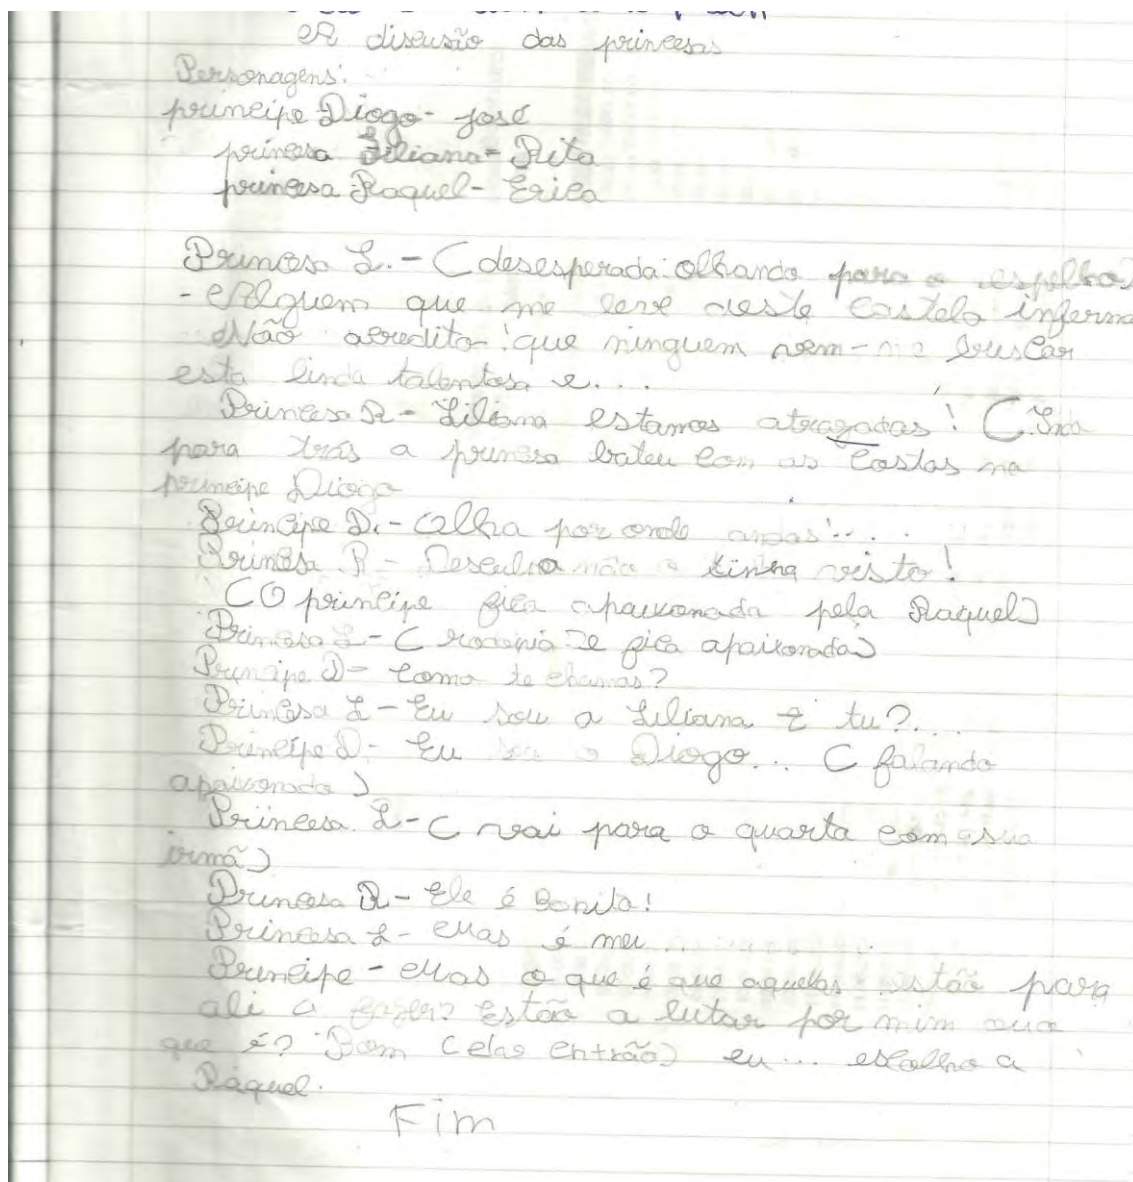 A discusão das princesas
Personagens:
principe Diogo - José
princesa Liliana - Rita
princesa Raquel - Erica
Princesa L. - (desesperada olhando para o espelho)
- Alguem que me leve deste castelo inferna
Não acredito que ninguem vem-me buscar
esta linda talentosa e....
Princesa R - Liliana estamos atrazadas! (Indo
para trás a princesa bateu com as costas no
principe Diogo
Principe D. - Olha por onde andas!...
Princesa R - Desculpa não o tinha visto!
(O principe fica apaixonado pela Raquel)
Princesa L - ( e fica apaixonada)
Principe D - Como te chamas?
Princesa L - Eu sou a Liliana E tu?....
Principe D - Eu sou o Diogo... (falando
apaixonado)
Princesa L - (vai para o quarto com a sua
irmã)
Princesa R - Ele é Bonito!
Princesa L - Mas é meu
Principe - Mas o que é que aquelas estão para
ali a fazer? Estão a lutar por mim ou o
que é? Bom (elas entrão) eu... escolho a
Raquel.
Fim